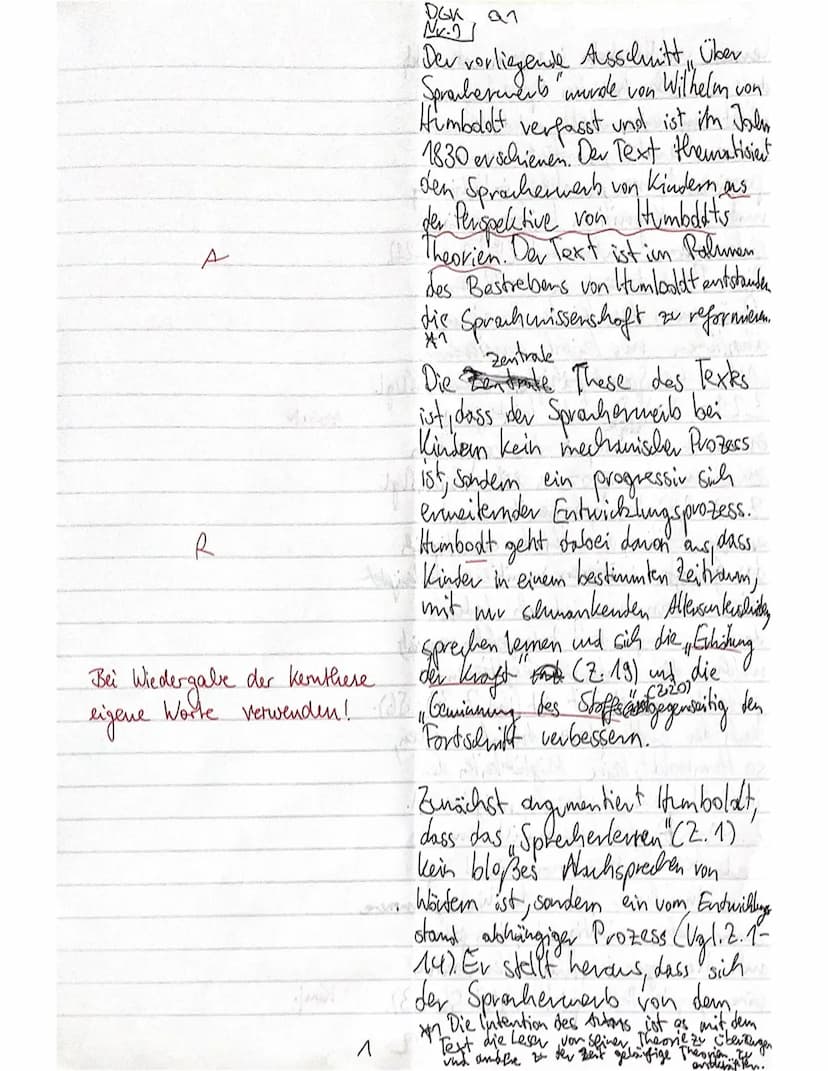 DGK a1
Nr. 1
Der vorliegende Ausschnitt „Über
Spracherwerb" wurde von Wilhelm von
Humboldt verfasst und ist im Jahr
1830 erschienen. Der Text thematisiert
den Spracherwerb von Kindern aus
der Perspektive von Humboldts
A
Theorien. Der Text ist im Rahmen
des Bestrebens von Humboldt entstanden
die Sprachwissenschaft zu reformieren.
*1
zentrale
Die These des Texts
ist, dass der Spracherwerb bei
Kindern kein mechanischer Prozess
ist, sondern ein progressiv sich
erweiternder Entwicklungsprozess.
R
Humbodt geht dabei davon aus, dass
Kinder in einem bestimmten Zeitraum,
mit nur schwankenden Altersunterschieden
sprechen lernen und sich die „Erhöhung
der Kraft" (Z. 19) und die
Bei Wiedergabe der Kernthese
eigene Worte verwenden!
„Gewinnung des Stoffs" (Z.20) gegenseitig den
Fortschritt verbessern.
Zunächst argumentiert Humboldt,
dass das „Sprechenlernen" (Z. 1)
kein bloßes Nachsprechen von
Wörtern ist, sondern ein vom Entwicklungs
stand abhängiger Prozess (Vgl. Z. 1-
14). Er stellt heraus, dass sich
der Spracherwerb von dem
*1 Die Intention des Autors ist es mit dem
Text die Leser von seiner Theorie zu überzeugen
und andere zu der Zeit geläufige Theorien zu
1